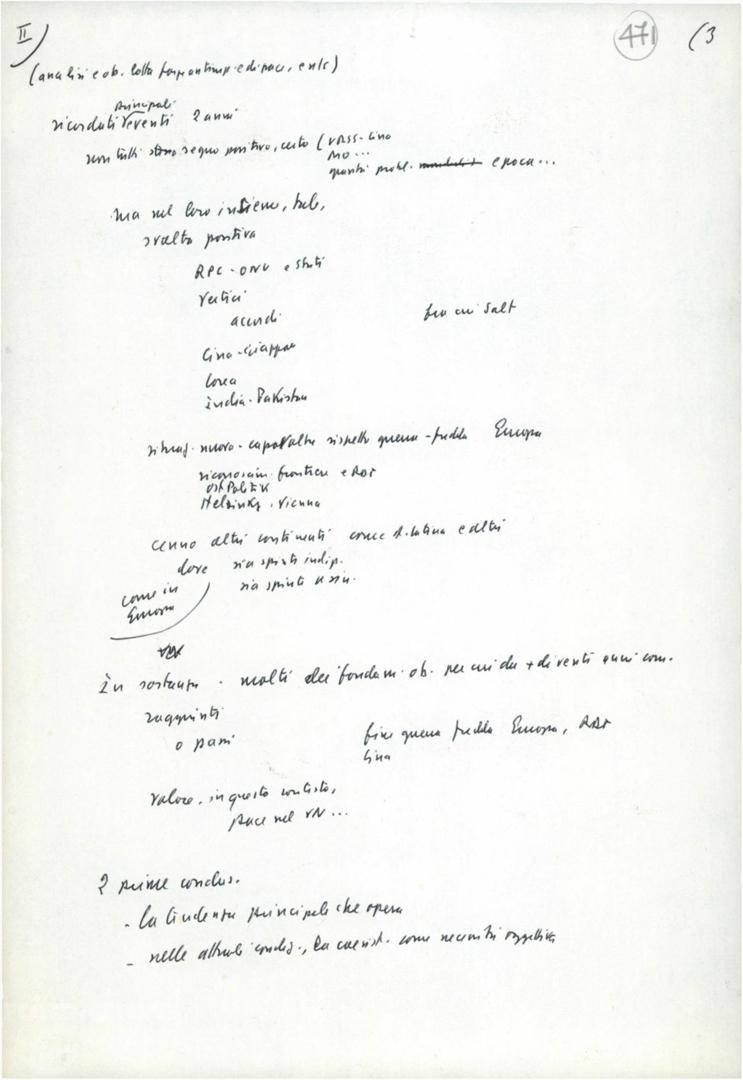 II) 471 (3
(analisi e ob. lotta forze antimp. e di pace, e nls)
principali
ricordati eventi 2 anni
non tutti segno positivo, certo (URSS-Cina
MO...
quanti probl. epoca...
ma nel loro insieme, tale,
svolta positiva
RPC-ONU e Stati
Vertici
accordi fra cui Salt
Cina-Giappone
Corea
India-Pakistan
situaz. nuova-capovolta rispetto guerra-fredda Europa
riconoscim. frontiere e RDT
OstPolitik
Helsinky, Vienna
cenno altri continenti come A. Latina e altri
dove sia spinte indip.
sia spinte a sin.
come in
Europa
In sostanza - molti dei fondam. ob. per cui da + di venti anni com.
raggiunti
o passi fine guerra fredda Europa, RDT
Cina
valore, in questo contesto,
pace nel VN...
2 prime conclus.
- la tendenza principale che opera
- nelle attuali condiz., la coesist. come necessità oggettiva